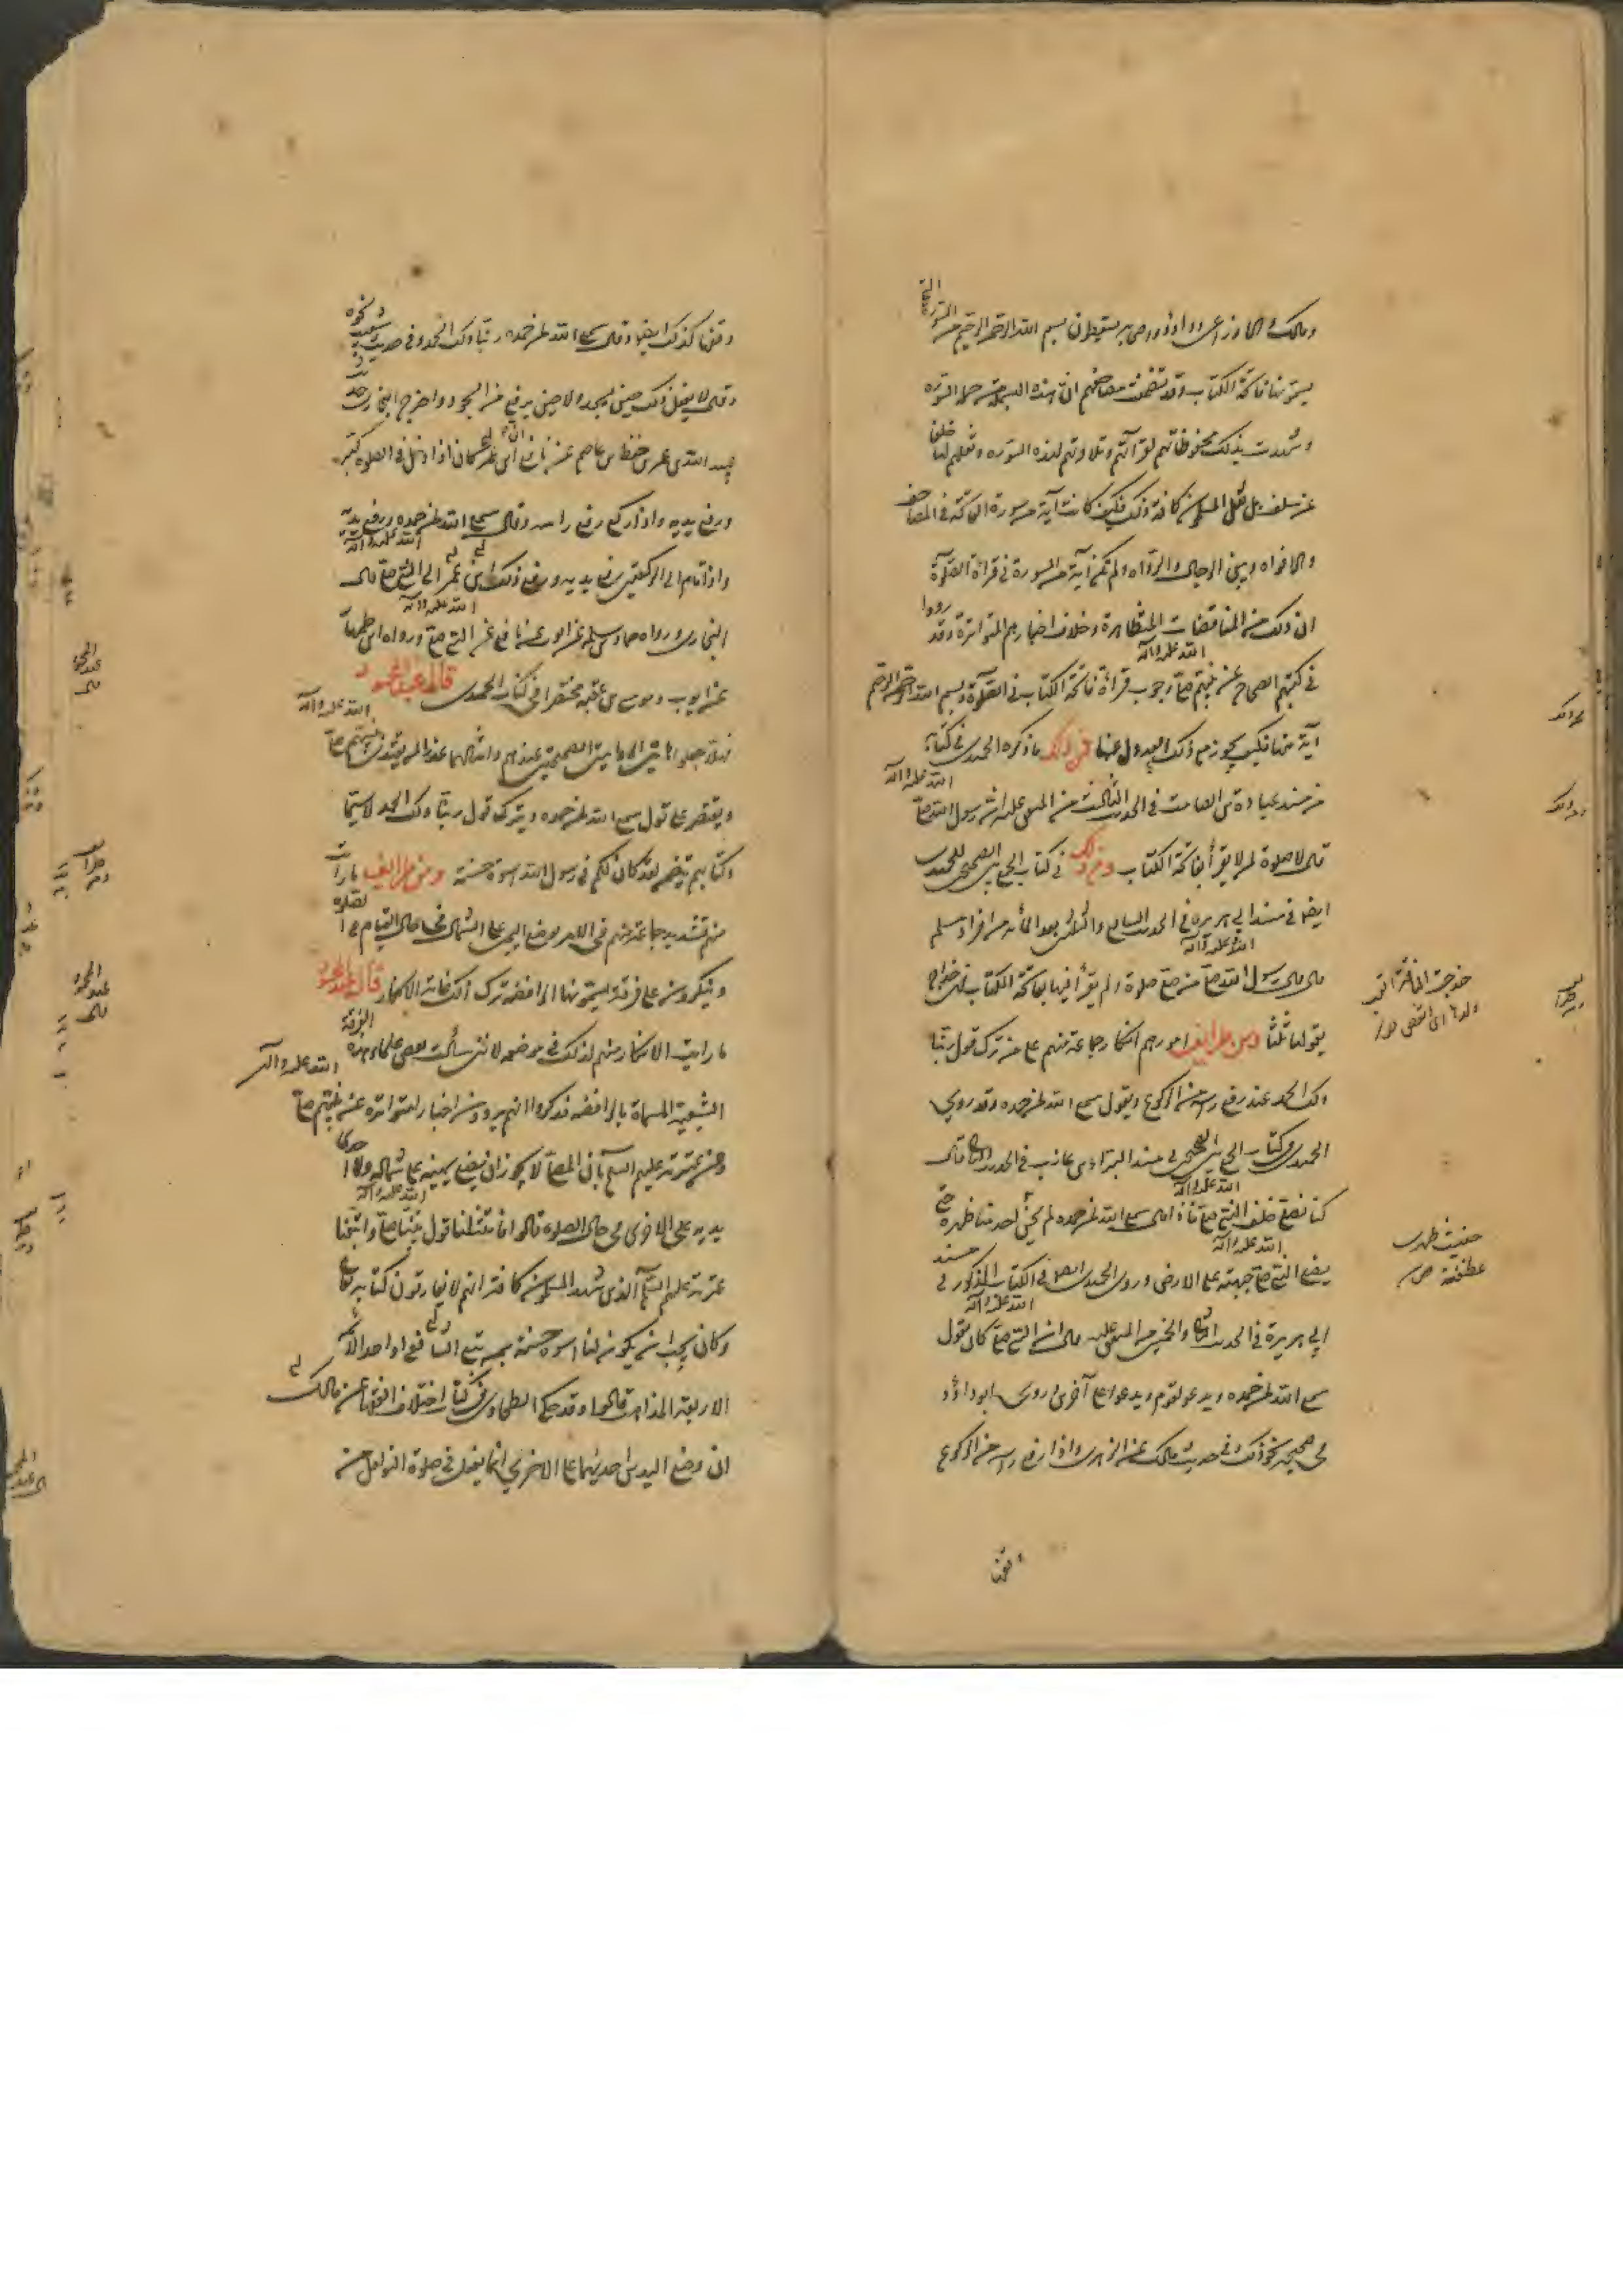 ومالك والاوزاعى وداود وصاحبيه يسقطون بسم الله الرحمن الرحيم من السورة التي
يسمونها فاتحة الكتاب وقد تضمنت مصاحفهم ان هذه البسملة من جملة السورة
وشهدت بذلك محفوظاتهم لقرآنهم وتلاوتهم لهذه السورة وتعليم خلف لها
عن سلف بل نقل المسلمون كافة ذلك فكيف كانت آية من سورة الفاتحة في المصاحف
والافواه وبين الرجال والرواة ولم تكن آية من السورة في قراءة الصلوة
ان ذلك من المناقضات المتظاهرة وخلاف اخبارهم المتواترة وقد رووا
في كتبهم الصحاح عن نبيهم صلى الله عليه وآله وجوب قراءة فاتحة الكتاب في الصلوة وبسم الله الرحمن الرحيم
آية منها فكيف يجوز مع ذلك العدول عنها فمن ذلك ما ذكره الحميدي في كتابه
من مسند عبادة بن الصامت في الحديث الثالث من المتفق عليه ان رسول الله صلى الله عليه وآله
قال لا صلوة لمن لا يقرأ بفاتحة الكتاب ومن ذلك في كتاب الجمع بين الصحيحين للحميدي
ايضا في مسند ابي هريرة في الحديث السابع والثلثين بعد المائة من افراد مسلم
قال قال رسول الله صلى الله عليه وآله من صلى صلوة لم يقرأ فيها بفاتحة الكتاب فهي خداج
يقولها ثلثا ومن طرايف امورهم انكار جماعة منهم على من ترك قول ربنا
ولك الحمد عند رفع راسه من الركوع ويقول سمع الله لمن حمده وقد روى
الحميدي في كتاب الجمع بين الصحيحين في مسند البراء بن عازب في الحديث الثاني قال
كنا نصلي خلف النبي صلى الله عليه وآله فاذا قال سمع الله لمن حمده لم يحن احد منا ظهره حتى
يضع النبي صلى الله عليه وآله جبهته على الارض وروى الحميدي ايضا في الكتاب المذكور في مسند
ابي هريرة في الحديث الثاني والخمسين من المتفق عليه قال ان النبي صلى الله عليه وآله كان يقول
سمع الله لمن حمده ويدعو لقوم ويدعو على آخرين وروى ابو داود
في صحيحه نحو ذلك وفي حديث مالك عن الزهري واذا رفع راسه من الركوع
رفعهما
وقفها كذلك ايضا وقال سمع الله لمن حمده ربنا ولك الحمد وفي حديث شعيب نحوه
وقال لا يفعل ذلك حين يسجد ولا حين يرفع من السجود واخرج البخاري من حديث
عبيد الله بن عمر بن حفص بن عاصم عن نافع ان ابن عمر كان اذا دخل في الصلوة كبر
ورفع يديه واذا ركع رفع راسه وقال سمع الله لمن حمده ورفع يديه
واذا قام الى الركعتين رفع يديه ورفع ذلك ابن عمر الى النبي صلى الله عليه وآله قال
البخاري ورواه حماد بن سلمة عن ايوب عن نافع عن النبي صلى الله عليه وآله ورواه ابن طهمان
عن ايوب وموسى بن عقبة مختصرا في كتاب الحميدي قال عبد المحمود
فهلا جعلوا هاتين الروايتين الصحيحتين عندهم وامثالهما عذرا لمن يقتدي بنبيهم صلى الله عليه وآله
ويقتصر على قول سمع الله لمن حمده ويترك قول ربنا ولك الحمد لا سيما
وكتابهم يتضمن لقد كان لكم في رسول الله اسوة حسنة ومن طرايف ما رايت
منهم تشديد جماعة منهم في الامر بوضع اليمين على الشمال في حال القيام في الصلوة
وينكرون على فرقة يسمونها الرافضة ترك ذلك غاية الانكار قال عبد المحمود
ما رايت الانكار منهم لذلك في موضعه لانني سألت بعض علماء هذه الفرقة
الشيعية المسماة بالرافضة فذكروا انهم يروون اخبارا متواترة عن نبيهم صلى الله عليه وآله
وعن عترته عليهم السلام بان المصلي لا يجوز ان يضع يمينه على شماله ولا احدى
يديه على الاخرى في حال الصلوة قالوا فامتثلنا قول نبينا صلى الله عليه وآله واتبعنا
عترته عليهم السلام الذين شهد المسلمون كافة انهم لا يفارقون كتاب ربنا
وكان يجب ان يكون لنا اسوة حسنة بمن يتبع الشافعي او احد
الاربعة المذاهب قالوا وقد حكى الطحاوي في كتاب اختلاف الفقهاء عن مالك
ان وضع اليدين احديهما على الاخرى انما يفعل في صلوة النوافل من